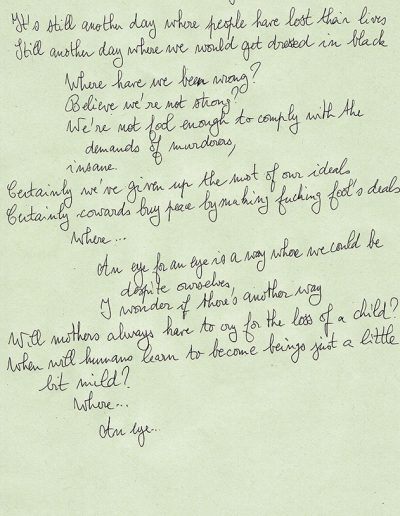 It's still another day where people have lost their lives
Still another day where we would get dressed in black
Where have we been wrong?
Believe we're not strong?
We're not fool enough to comply with the
demands of murdorers,
insane.
Certainly we've given up the most of our ideals
Certainly cowards buy peace by making fucking fool's deals
Where...
An eye for an eye is a way where we could be
despite ourselves,
I wonder if there's another way
Will mothers always have to cry for the loss of a child?
When will humans learn to become beings just a little
bit mild?
Where...
An eye...